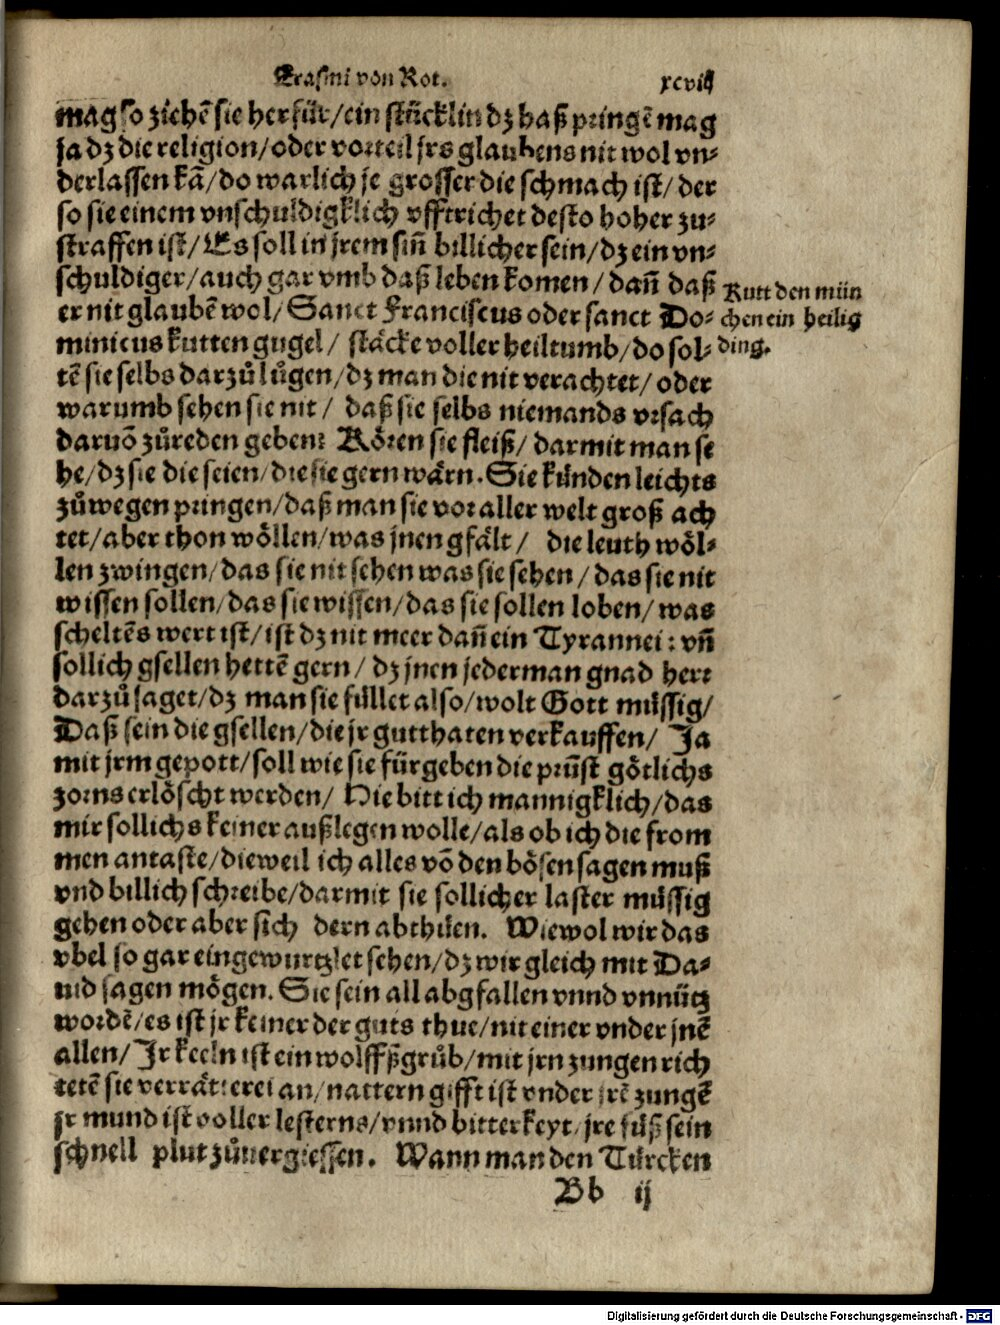 Erasmi von Rot. xcviij
mag so ziehē sie herfür/ein stücklin dz baß pringē mag
ja dz die religion/oder vorteil jrs glaubens nit wol vn⸗
derlassen kā/do warlich je grosser die schmach ist/der
so sie einem vnschuldigklich vfftrichet desto hoher zu⸗
straffen ist/Es soll in jrem siñ billicher sein/dz ein vn⸗
schuldiger/auch gar vmb daß leben komen/dañ daß
er nit glaubē wol/Sanct Franciscus oder sanct Do⸗
minicus kutten gugel/ stäcke voller heiltumb/do sol⸗
tē sie selbs darzů lůgen/dz man die nit verachtet/oder
warumb sehen sie nit/ daß sie selbs niemands vrsach
daruō zůreden geben: Kören sie fleiß/darmit man se
he/dz sie die seien/die sie gern wärn. Sie künden leichts
zůwegen pringen/daß man sie vor aller welt groß ach
tet/aber thon wöllen/was jnen gfält/ die leuth wöl⸗
len zwingen/das sie nit sehen was sie sehen/das sie nit
wissen sollen/das sie wissen/das sie sollen loben/was
scheltēs wert ist/ist dz nit meer dañ ein Tyrannei: vñ
sollich gsellen hettē gern/dz jnen jederman gnad herr
darzů saget/dz man sie füllet also/wolt Gott müssig/
Daß sein die gsellen/die jr gutthaten verkauffen/ Ja
mit jrm gepott/soll wie sie fürgeben die prūst götlichs
zorns erlöscht werden/ Hie bitt ich mannigklich/das
mir sollichs keiner außlegen wolle/als ob ich die from
men antaste/dieweil ich alles vō den bösen sagen muß
vnd billich schreibe/darmit sie sollicher laster müssig
gehen oder aber sich dern abthüen. Wiewol wir das
vbel so gar eingewurtzlet sehen/dz wir gleich mit Da⸗
uid sagen mögen. Sie sein all abgfallen vnnd vnnütz
wordē/es ist jr keiner der guts thue/nit einer vnder jnē
allen/Jr keeln ist ein wolffßgrůb/mit jrn zungen rich
tetē sie verrätterei an/nattern gifft ist vnder jrē zungē
jr mund ist voller lesterns/vnnd bitterkeyt/jre füß sein
schnell plut zůuergiessen. Wann man den Türcken
Bb ij
Kutt den mün
chen ein heilig
ding.
Digitalisierung gefördert durch die Deutsche Forschungsgemeinschaft - DFG